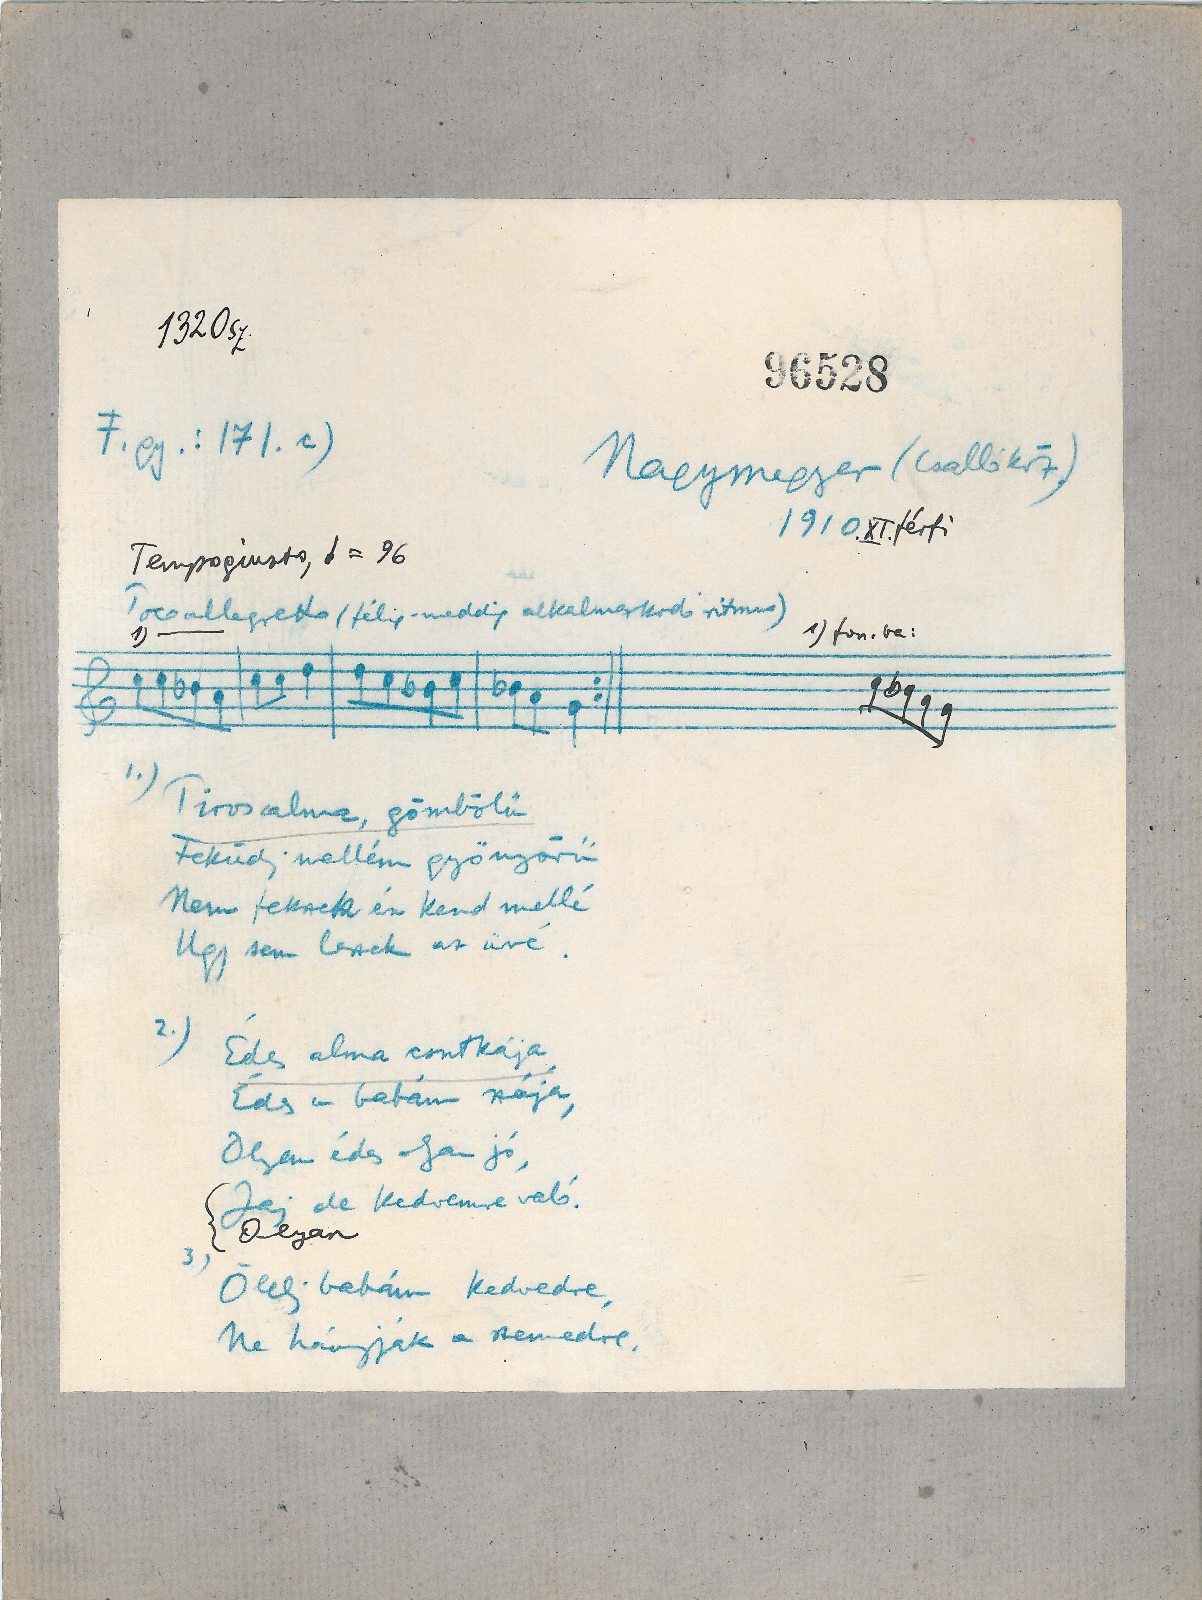 1320sz.
96528
F. gy.: 171. c)
Nagymegyer (Csallóköz)
1910.XI. férfi
Tempo giusto, = 96
Poco allegretto (félig-meddig alkalmazkodó ritmus)
1)
1) fon. va:
1.)
Piros alma, gömbölű
Feküdj mellém gyönyörű
Nem fekszek én kend mellé
Ugy sem leszek az
2.)
Édes alma csutkája,
Édes a babám szája,
Olyan édes olyan jó,
Jaj de kedvemre való.
Olyan
3,
Ölelj babám kedvedre,
Ne hányják a szemedre.